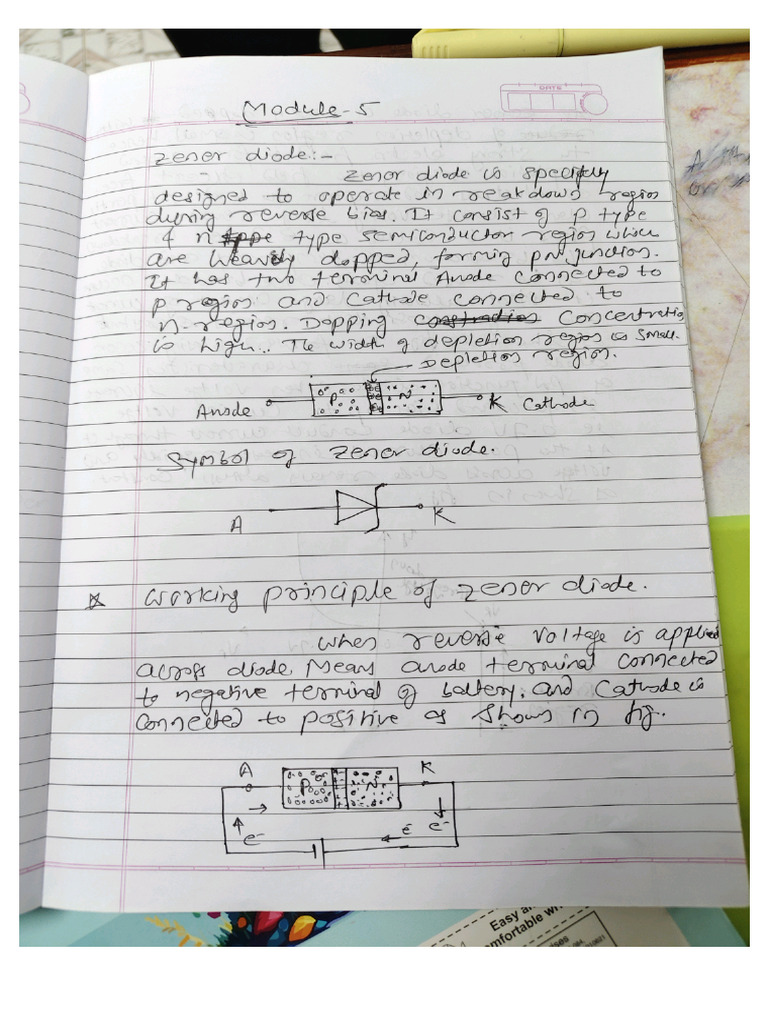 DATE
Module-5
Zener diode:-
Zenor diode is specifly
designed to operate in reakdown region
during reverse bias. It consist of p type
& n type type semiconductor region which
are heavily dopped, forming pn junction.
It has two terminal Anode connected to
p region and Cathode connected to
n-region. Dopping Concentratio
is high.. The width of depletion region is small.
Depletion region.
P N
Anode K Cathode
Symbol of Zenor diode.
A K
Working principle of Zenor diode.
When reverse voltage is applied
across diode. Means anode terminal connected
to negative terminal of battery. and Cathode is
connected to positive as shown in fig.
A K
P N
e- e- e-
Easy
mfortable wi